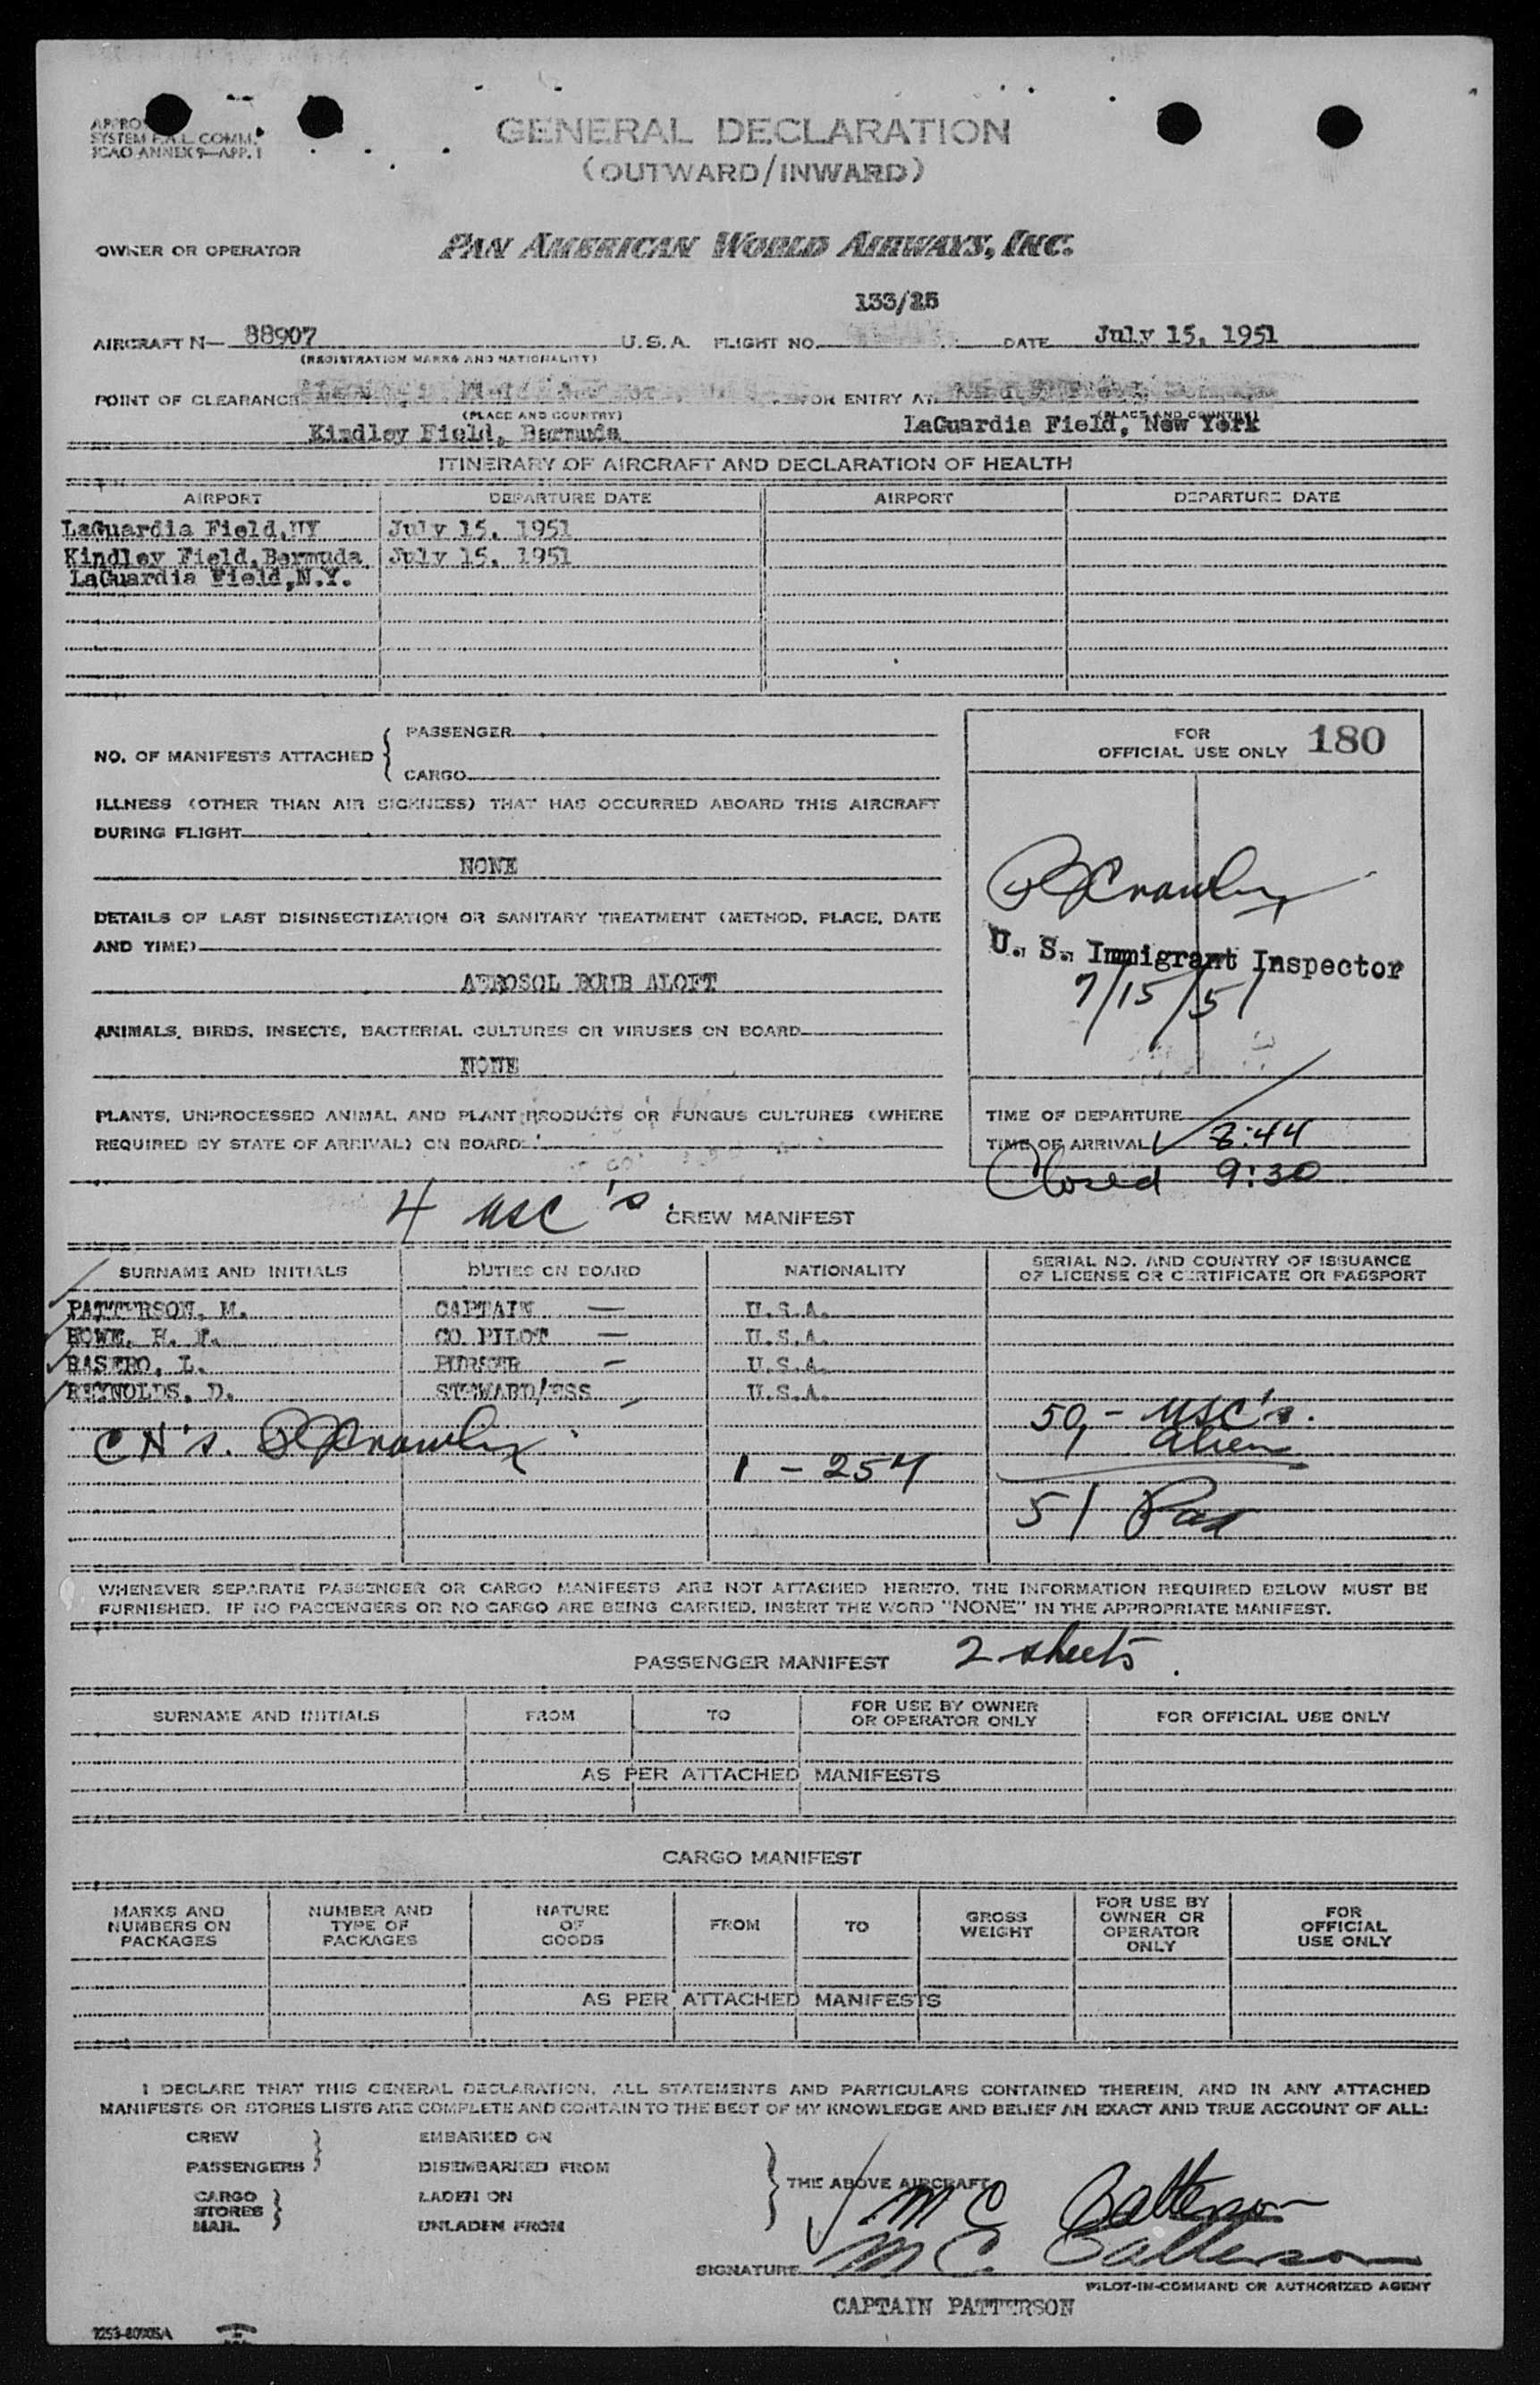 GENERAL DECLARATION
(OUTWARD/INWARD)
SYSTEM F.A.L. COMM.
ICAO ANNEX 9—APP. 1
OWNER OR OPERATOR PAN AMERICAN WORLD AIRWAYS, INC.
133/25
AIRCRAFT N— 88907 U.S.A. FLIGHT NO. DATE July 15, 1951
(REGISTRATION MARKS AND NATIONALITY)
POINT OF CLEARANCE FOR ENTRY AT
(PLACE AND COUNTRY) (PLACE AND COUNTRY)
Kindley Field, Bermuda LaGuardia Field, New York
ITINERARY OF AIRCRAFT AND DECLARATION OF HEALTH
AIRPORT DEPARTURE DATE AIRPORT DEPARTURE DATE
LaGuardia Field,NY July 15, 1951
Kindley Field,Bermuda July 15, 1951
LaGuardia Field,N.Y.
NO. OF MANIFESTS ATTACHED { PASSENGER
CARGO
FOR
OFFICIAL USE ONLY 180
ILLNESS (OTHER THAN AIR SICKNESS) THAT HAS OCCURRED ABOARD THIS AIRCRAFT
DURING FLIGHT
NONE
DETAILS OF LAST DISINSECTIZATION OR SANITARY TREATMENT (METHOD, PLACE, DATE
AND TIME)
AEROSOL BOMB ALOFT
U. S. Immigrant Inspector
7/15/51
ANIMALS, BIRDS, INSECTS, BACTERIAL CULTURES OR VIRUSES ON BOARD
NONE
PLANTS, UNPROCESSED ANIMAL AND PLANT PRODUCTS OR FUNGUS CULTURES (WHERE
REQUIRED BY STATE OF ARRIVAL) ON BOARD
TIME OF DEPARTURE
TIME OF ARRIVAL 8:44
Closed 9:30
4 USC's. CREW MANIFEST
SURNAME AND INITIALS DUTIES ON BOARD NATIONALITY SERIAL NO. AND COUNTRY OF ISSUANCE
OF LICENSE OR CERTIFICATE OR PASSPORT
PATTERSON, M. CAPTAIN — U.S.A.
HOWE, H. CO. PILOT — U.S.A.
BASERO, L. PURSER — U.S.A.
REYNOLDS, D. STEWARD/ESS — U.S.A.
50 - USC's.
1 - 257 Alien
51 Pax
WHENEVER SEPARATE PASSENGER OR CARGO MANIFESTS ARE NOT ATTACHED HERETO, THE INFORMATION REQUIRED BELOW MUST BE
FURNISHED. IF NO PASSENGERS OR NO CARGO ARE BEING CARRIED, INSERT THE WORD "NONE" IN THE APPROPRIATE MANIFEST.
PASSENGER MANIFEST 2 sheets.
SURNAME AND INITIALS FROM TO FOR USE BY OWNER
OR OPERATOR ONLY FOR OFFICIAL USE ONLY
AS PER ATTACHED MANIFESTS
CARGO MANIFEST
MARKS AND
NUMBERS ON
PACKAGES
NUMBER AND
TYPE OF
PACKAGES
NATURE
OF
GOODS
FROM TO
GROSS
WEIGHT
FOR USE BY
OWNER OR
OPERATOR
ONLY
FOR
OFFICIAL
USE ONLY
AS PER ATTACHED MANIFESTS
I DECLARE THAT THIS GENERAL DECLARATION, ALL STATEMENTS AND PARTICULARS CONTAINED THEREIN, AND IN ANY ATTACHED
MANIFESTS OR STORES LISTS ARE COMPLETE AND CONTAIN TO THE BEST OF MY KNOWLEDGE AND BELIEF AN EXACT AND TRUE ACCOUNT OF ALL:
CREW EMBARKED ON
PASSENGERS DISEMBARKED FROM
CARGO LADEN ON
STORES
MAIL UNLADEN FROM
THE ABOVE AIRCRAFT
M C Patterson
SIGNATURE M C. Patterson
PILOT-IN-COMMAND OR AUTHORIZED AGENT
CAPTAIN PATTERSON